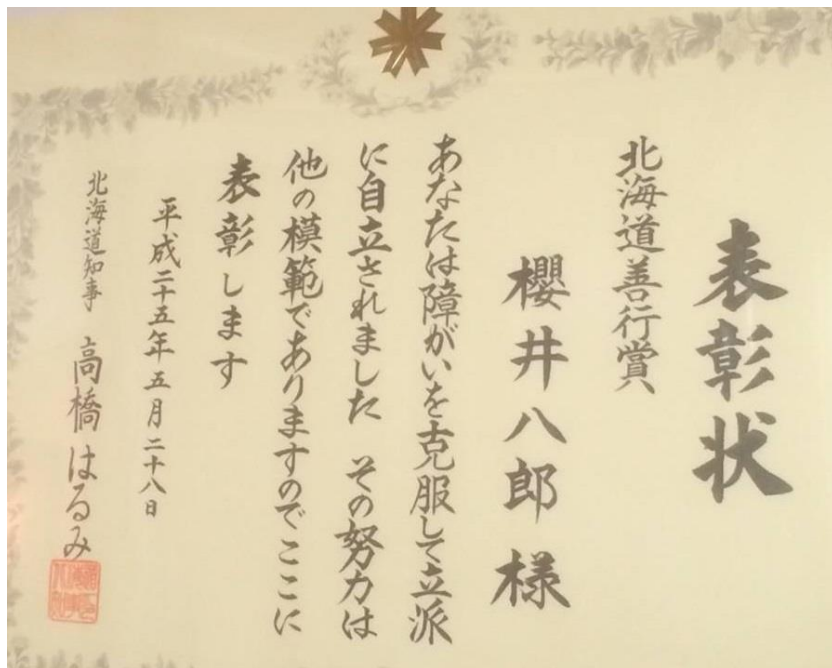 表彰状
北海道善行賞
櫻井八郎様
あなたは障がいを克服して立派
に自立されました その努力は
他の模範でありますのでここに
表彰します
平成二十五年五月二十八日
北海道知事 高橋はるみ